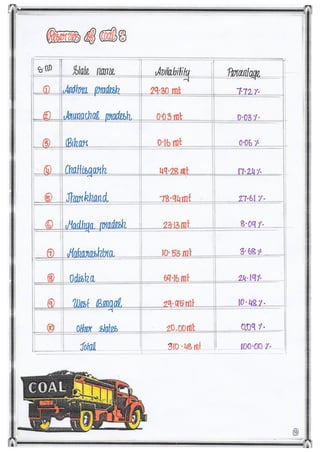 Reserves of coal :
S.no State name Avilability Percentage
① Andhra pradesh 29.30 mt 7.72 %
② Arunachal pradesh 0.03 mt 0.03 %
③ Bihar 0.16 mt 0.06 %
④ Chattisgarh 49.28 mt 17.24 %
⑤ Jharkhand 78.94 mt 27.61 %
⑥ Madhya pradesh 23.13 mt 8.09 %
⑦ Maharashtra 10.53 mt 3.68 %
⑧ Odisha 69.16 mt 24.19 %
⑨ West Bangal 29.95 mt 10.48 %
⑩ Other states 20.00 mt 0.09 %
Total 310.48 mt 100.00 %
COAL